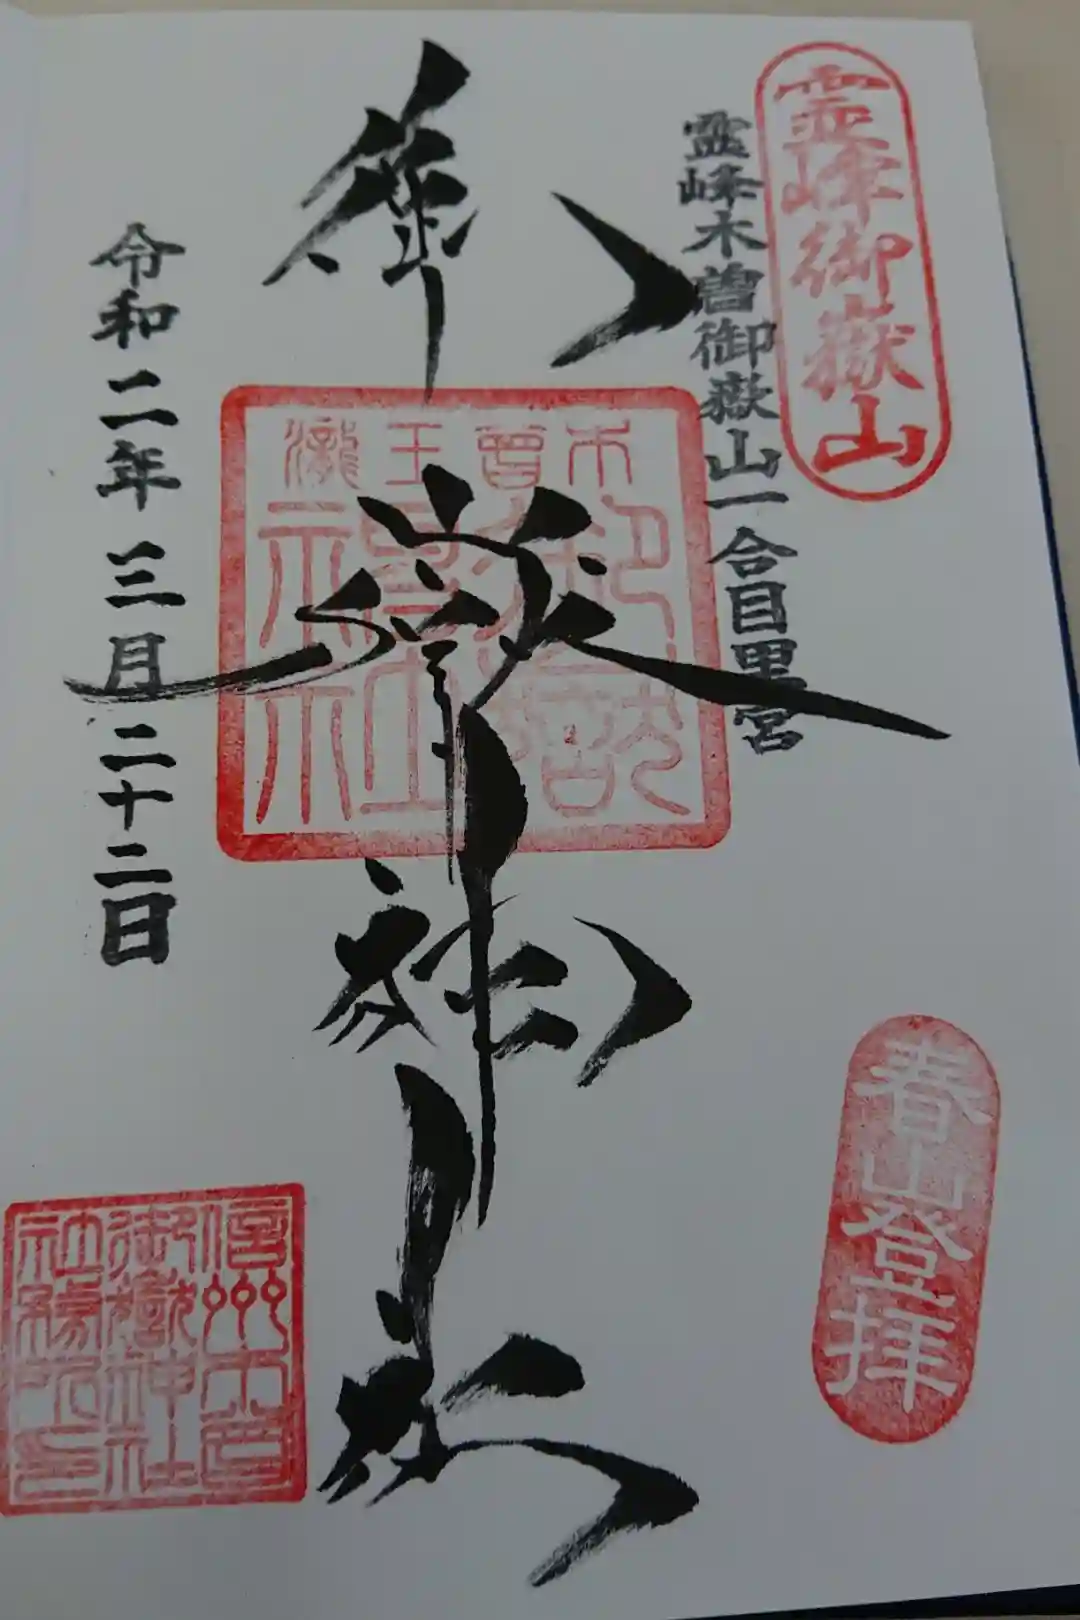 霊峰御嶽山
霊峰木曽御嶽山一合目里宮
春山登拝
御嶽神社
木曽王滝
御嶽神社
令和二年三月二十二日
信州木曽
御嶽神社
社務所印